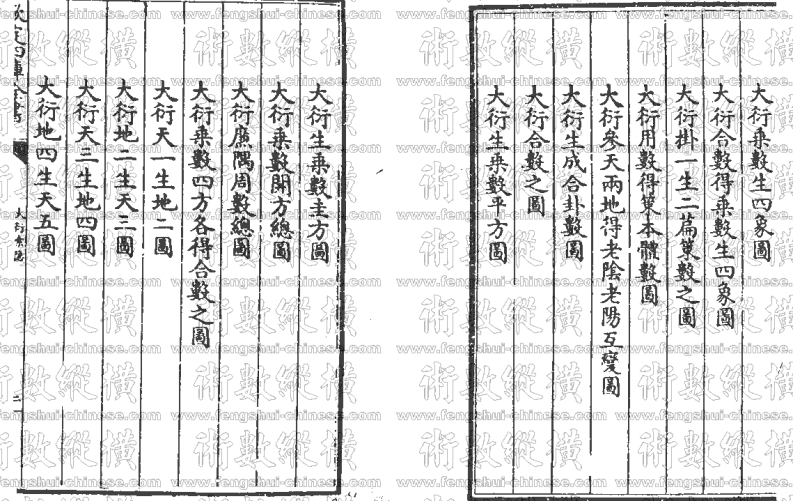 大衍乘數生四象圖
大衍合數得乘數生四象圖
大衍掛一生二篇策數之圖
大衍用數得策本體數圖
大衍參天兩地得老陰老陽互變圖
大衍生成合卦數圖
大衍合數之圖
大衍生乘數平方圖
大衍生乘數圭方圖
大衍乘數開方總圖
大衍廉隅周數總圖
大衍乘數四方各得合數之圖
大衍天一生地二圖
大衍地二生天三圖
大衍天三生地四圖
大衍地四生天五圖
欽定四庫全書
大衍索隱
二
術數縱橫
www.fengshui-chinese.com